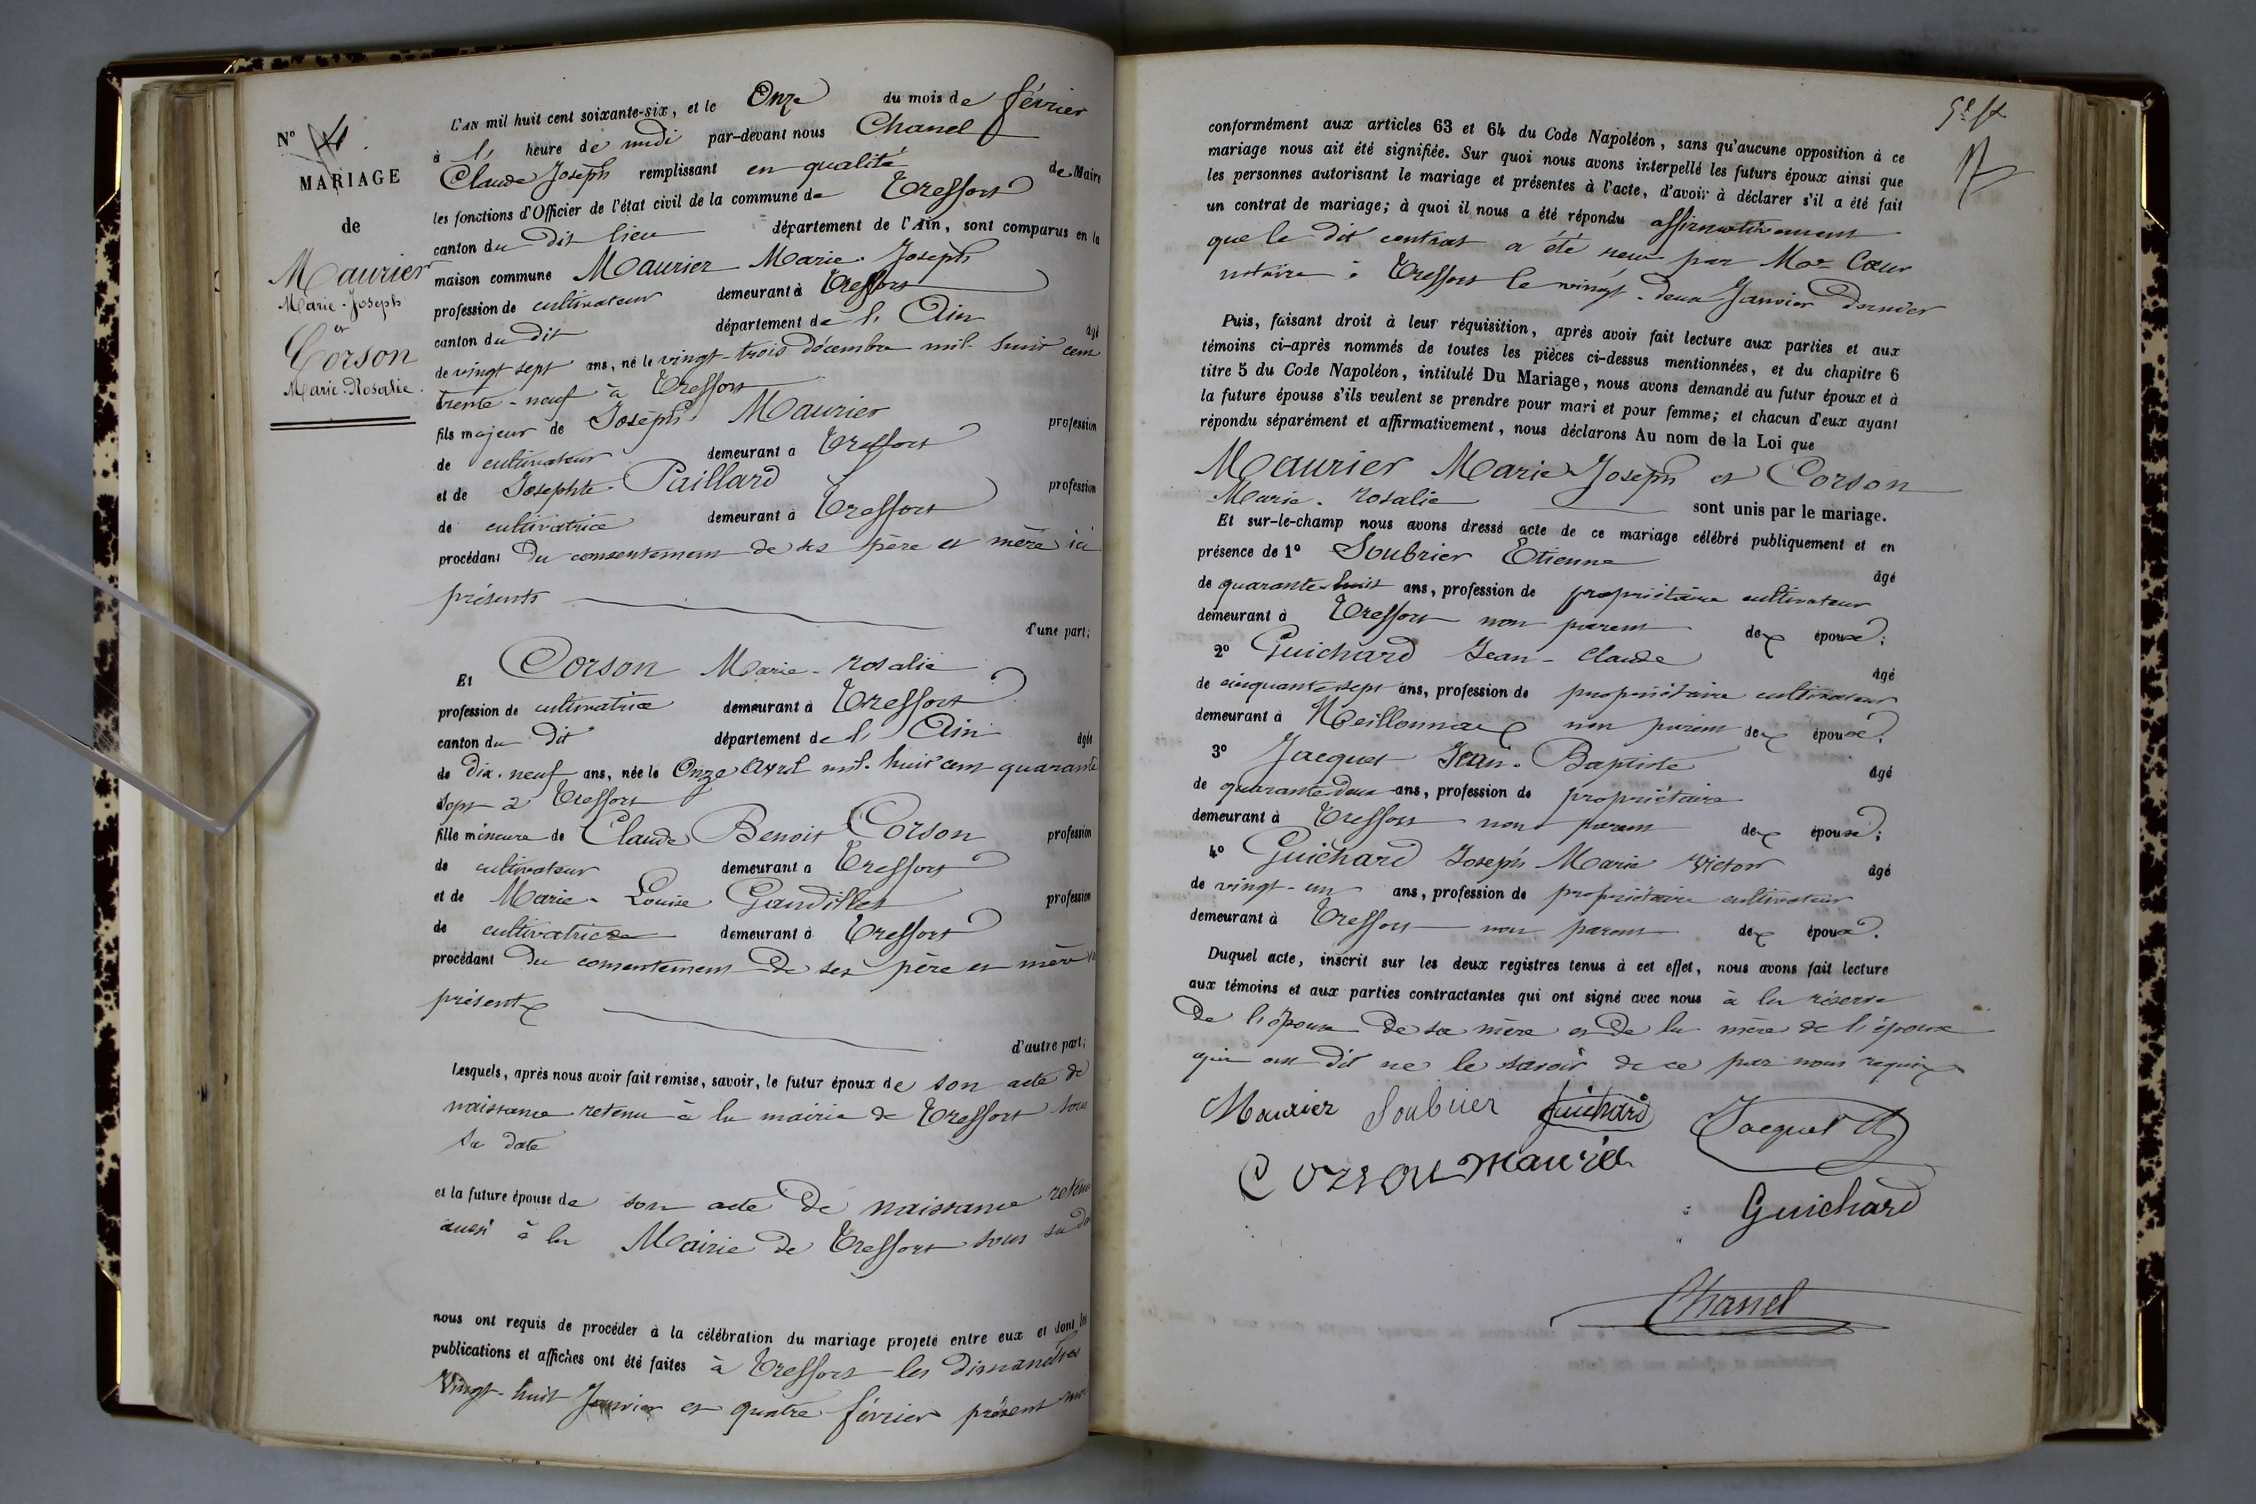 N° 4
MARIAGE
de
Maurier
Marie-Joseph
et
Corson
Marie-Rosalie.
L'AN mil huit cent soixante-six, et le Onze du mois de février
à l' heure de midi par-devant nous Chanel
Claude Joseph remplissant en qualité de Maire
les fonctions d'Officier de l'état civil de la commune de Treffort
canton du dit lieu département de l'Ain, sont comparus en la
maison commune Maurier Marie-Joseph
profession de cultivateur demeurant à Treffort
canton du dit département de l'Ain âgé
de vingt sept ans, né le vingt-trois décembre mil-huit cent
trente-neuf à Treffort
fils majeur de Joseph Maurier profession
de cultivateur demeurant à Treffort
et de Josephte Paillard profession
de cultivatrice demeurant à Treffort
procédant du consentement de ses père et mère ici
présents
d'une part;
Et Corson Marie-rosalie
profession de cultivatrice demeurant à Treffort
canton du dit département de l'Ain âgée
de dix-neuf ans, née le Onze Avril mil-huit cent quarante
sept à Treffort
fille mineure de Claude Benoit Corson profession
de cultivateur demeurant à Treffort
et de Marie-Louise Gaudillet profession
de cultivatrice demeurant à Treffort
procédant du consentement de ses père et mère ici
présents
d'autre part;
Lesquels, après nous avoir fait remise, savoir, le futur époux de son acte de
naissance retenu à la mairie de Treffort sous
sa date
et la future épouse de son acte de naissance retenu
aussi à la Mairie de Treffort sous sa date
nous ont requis de procéder à la célébration du mariage projeté entre eux et dont les
publications et affiches ont été faites à Treffort les dimanches
vingt-huit Janvier et quatre février présent mois
conformément aux articles 63 et 64 du Code Napoléon, sans qu'aucune opposition à ce
mariage nous ait été signifiée. Sur quoi nous avons interpellé les futurs époux ainsi que
les personnes autorisant le mariage et présentes à l'acte, d'avoir à déclarer s'il a été fait
un contrat de mariage; à quoi il nous a été répondu affirmativement
que le dit contrat a été reçu par Me Cœur
notaire à Treffort le vingt-deux Janvier dernier
Puis, faisant droit à leur réquisition, après avoir fait lecture aux parties et aux
témoins ci-après nommés de toutes les pièces ci-dessus mentionnées, et du chapitre 6
titre 5 du Code Napoléon, intitulé Du Mariage, nous avons demandé au futur époux et à
la future épouse s'ils veulent se prendre pour mari et pour femme; et chacun d'eux ayant
répondu séparément et affirmativement, nous déclarons Au nom de la Loi que
Maurier Marie Joseph et Corson
Marie-rosalie sont unis par le mariage.
Et sur-le-champ nous avons dressé acte de ce mariage célébré publiquement et en
présence de 1° Soubrier Etienne âgé
de quarante-huit ans, profession de propriétaire cultivateur
demeurant à Treffort non parent des époux;
2° Guichard Jean-Claude âgé
de cinquante sept ans, profession de propriétaire cultivateur
demeurant à Meillonnas non parent des époux;
3° Jacquet Jean-Baptiste âgé
de quarante deux ans, profession de propriétaire
demeurant à Treffort non parent des époux;
4° Guichard Joseph Marie Victor âgé
de vingt-un ans, profession de propriétaire cultivateur
demeurant à Treffort non parent des époux.
Duquel acte, inscrit sur les deux registres tenus à cet effet, nous avons fait lecture
aux témoins et aux parties contractantes qui ont signé avec nous à la réserve
de l'épouse de sa mère et de la mère de l'époux
qui ont dit ne le savoir de ce par nous requis
Maurier Soubrier Guichard Jacquet
Corson Maurier
Guichard
Chanel